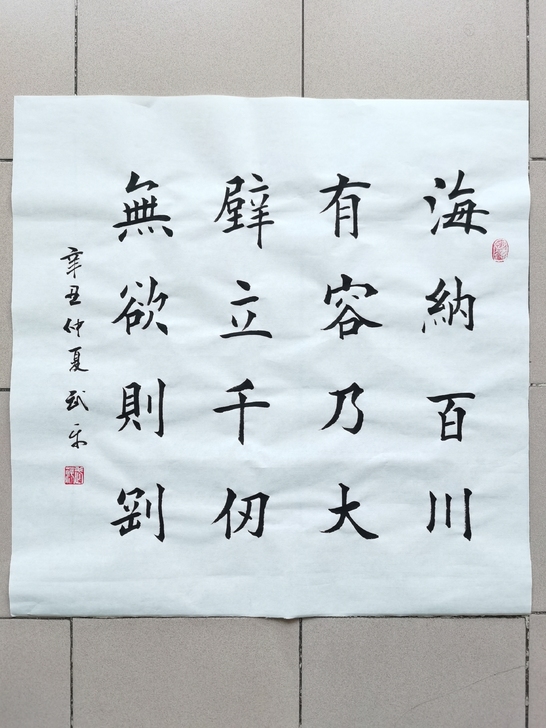 海納百川
有容乃大
壁立千仞
無欲則剛
辛丑仲夏武